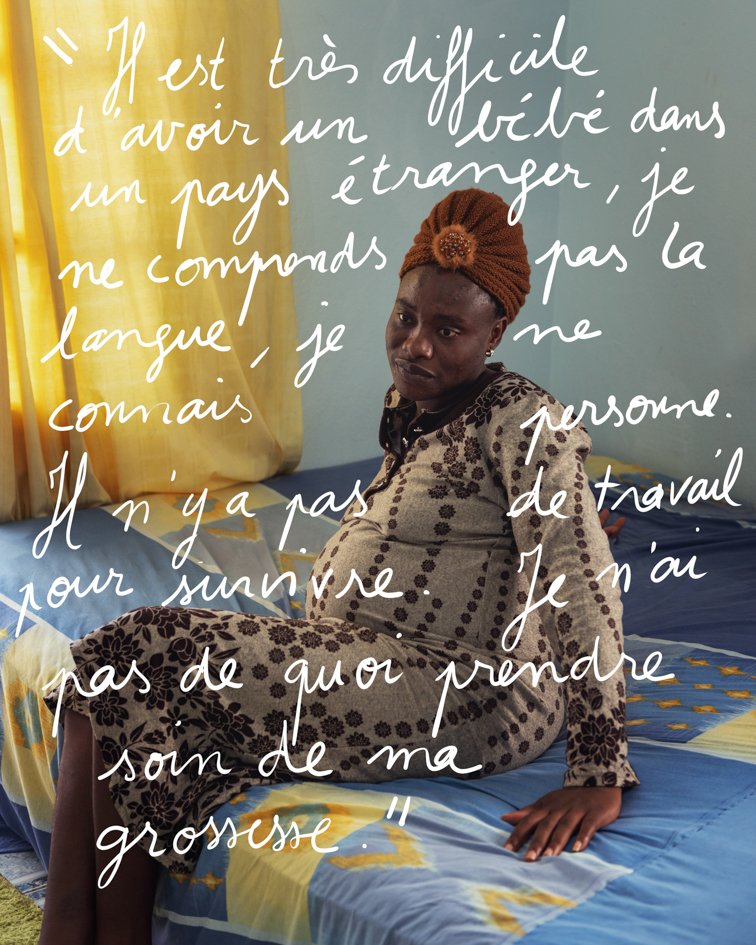 "Il est très difficile
d'avoir un bébé dans
un pays étranger, je
ne comprends pas la
langue, je ne
connais personne.
Il n'y a pas de travail
pour survivre. Je n'ai
pas de quoi prendre
soin de ma
grossesse."